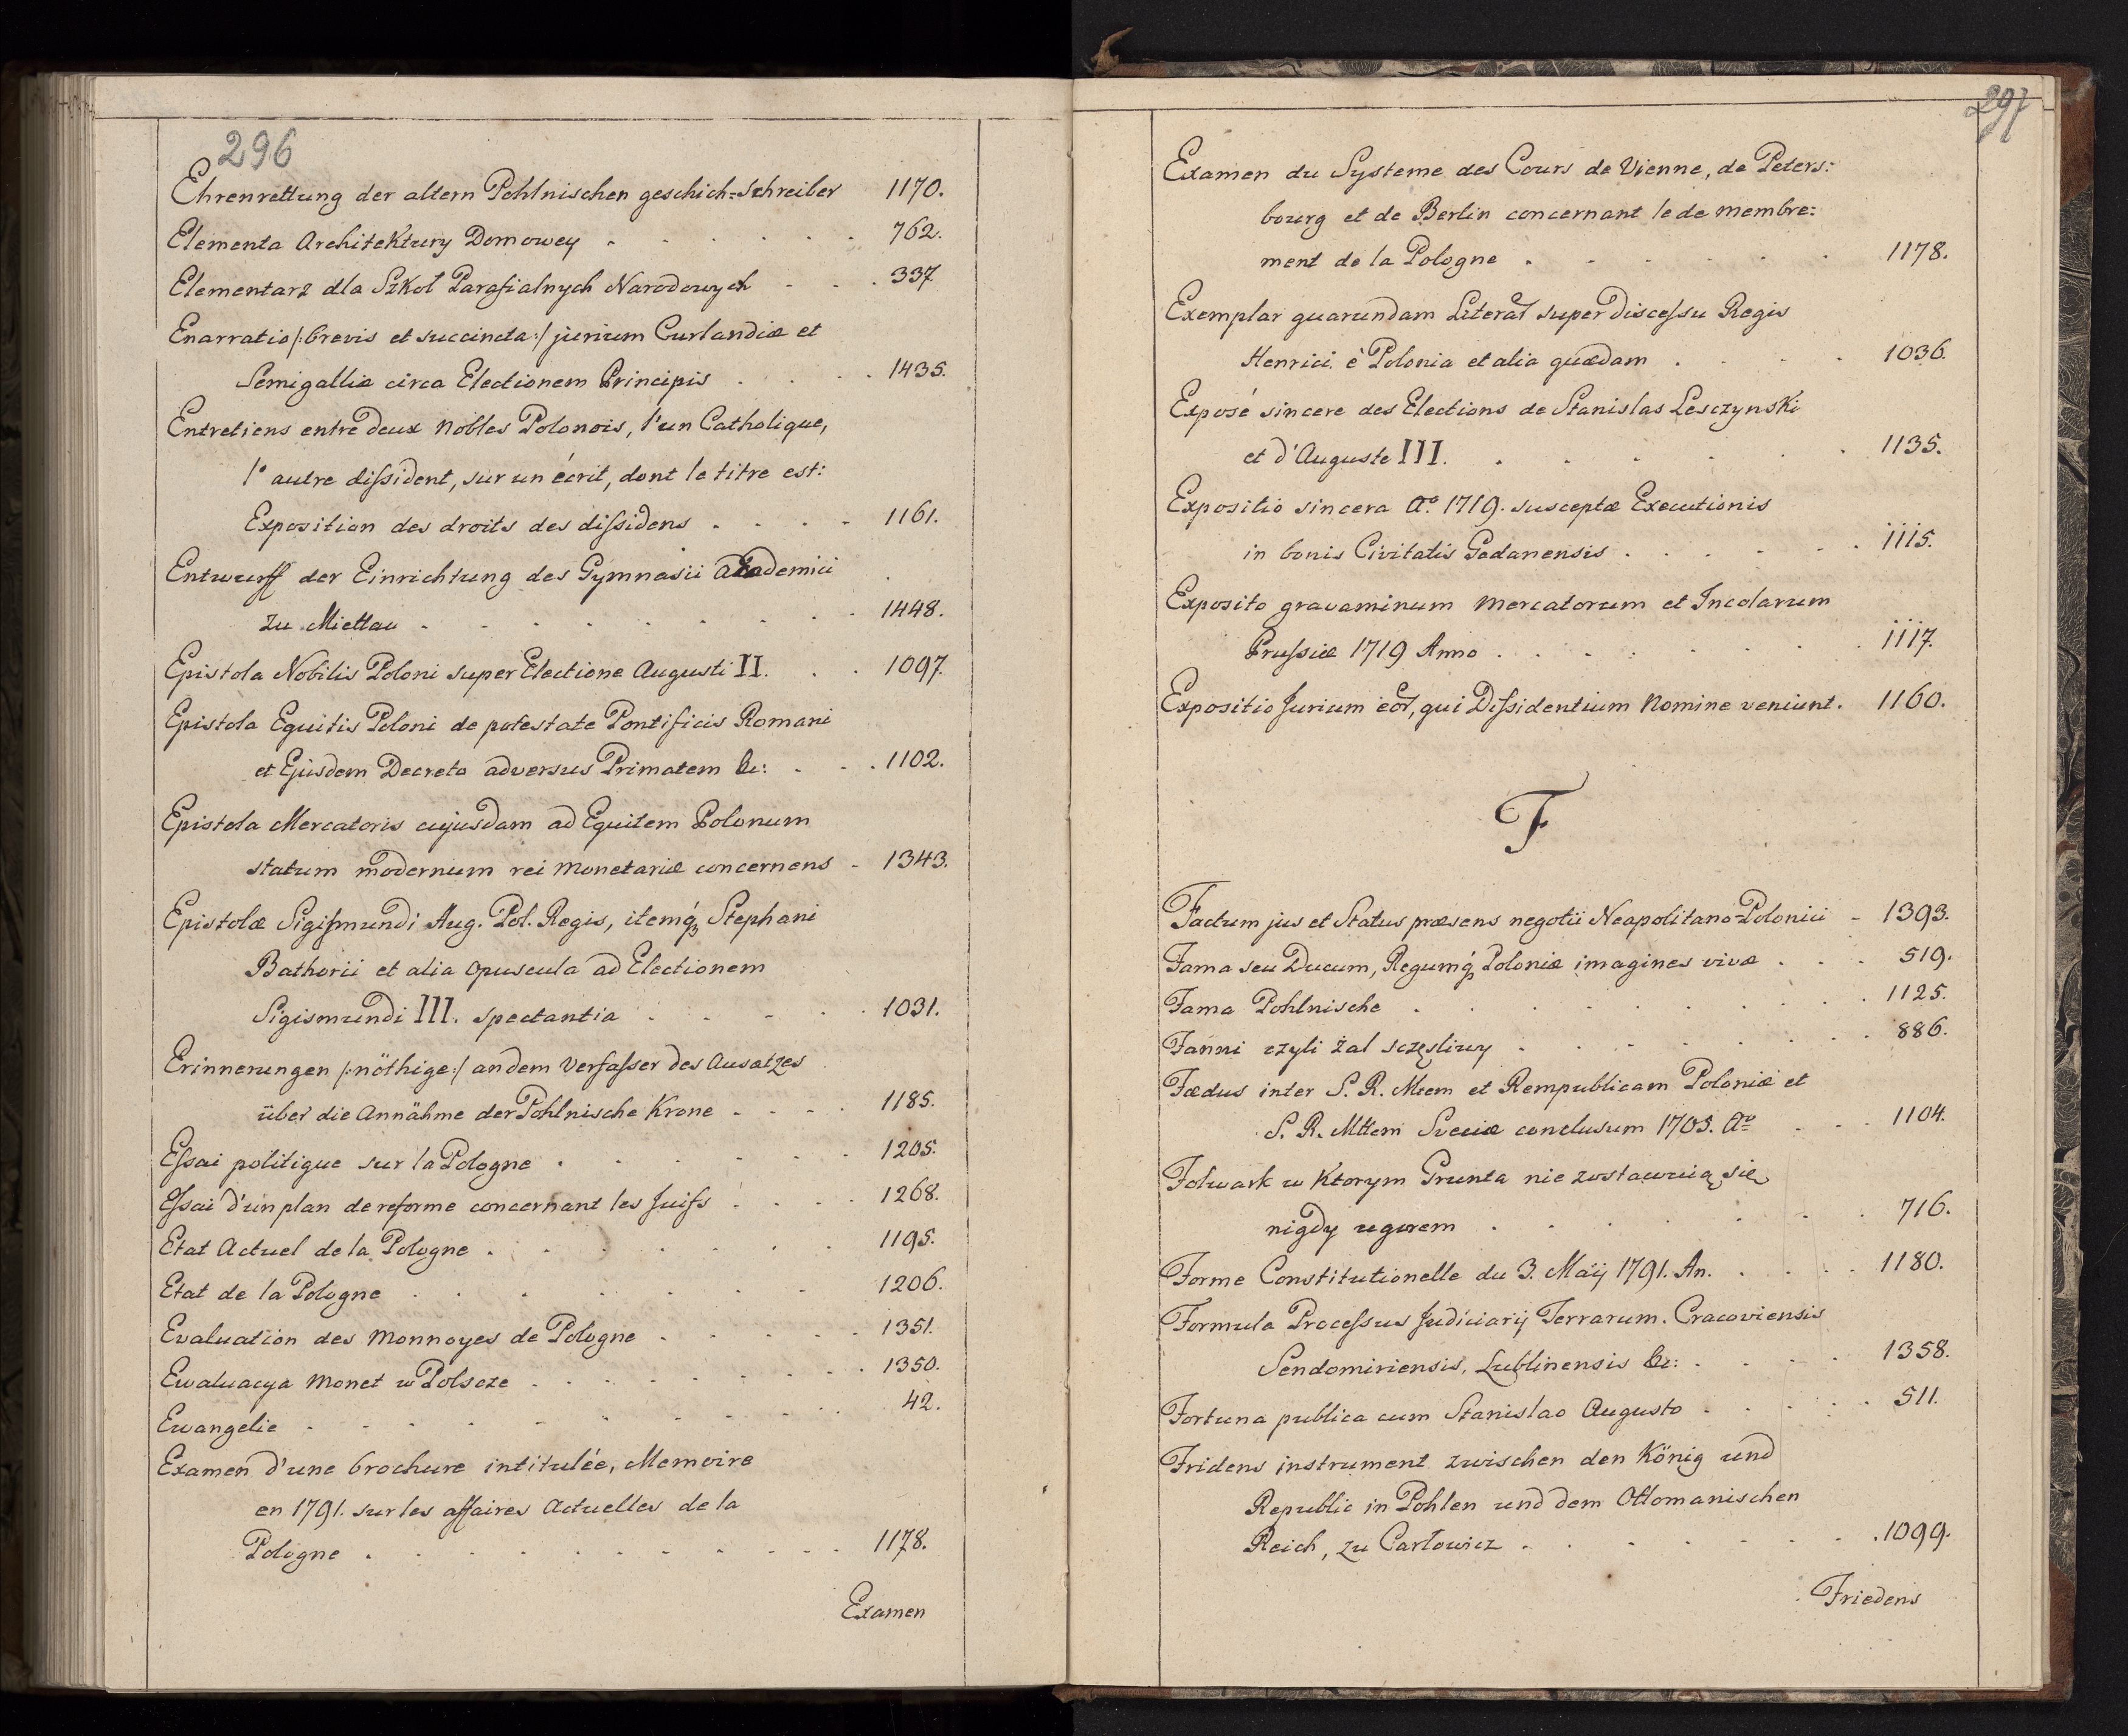 296
Ehrenrettung der altern Pohlnischen geschich=Schreiber 1170.
Elementa Architektury Domowey . . . . . . 762.
Elementarz dla Szkoł Parafialnych Narodowych . . . 337
Enarratio /:brevis et succincta:/ jurium Curlandiæ et
Semigalliæ circa Electionem Principis . . . . 1435.
Entretiens entre deux Nobles Polonois, l'un Catholique,
l'autre dissident, sur un écrit, dont le titre est:
Exposition des droits des dissidens . . . . 1161.
Entwurff der Einrichtung des Gymnasii Akademici
zu Miettau . . . . . . . . 1448.
Epistola Nobilis Poloni super Electione Augusti II. . . 1097.
Epistola Equitis Poloni de potestate Pontificis Romani
et Ejusdem Decreto adversus Primatem &c: . . . 1102.
Epistola Mercatoris cujusdam ad Equitem Polonum
statum modernum rei Monetariæ concernens - 1343.
Epistolæ Sigismundi Aug. Pol. Regis, itemq, Stephani
Bathorii et alia Opuscula ad Electionem
Sigismundi III. spectantia . . . . . 1031.
Erinnerungen /:nöthige:/ an dem Verfasser des Ausatzes
über die Annähme der Pohlnische Krone . . . . 1185.
Essai politique sur la Pologne . . . . . . 1205.
Essai d'un plan de reforme concernant les Juifs . . . . 1268.
Etat Actuel de la Pologne . . . . . . . 1195.
Etat de la Pologne . . . . . . . . 1206.
Evaluation des Monnoyes de Pologne . . . . . 1351.
Ewaluacya Monet w Polscze . . . . . . . 1350.
Ewangelie . . . . . . . . . . 42.
Examen d'une brochure intitulée, Memoire
en 1791. sur les affaires Actuelles de la
Pologne . . . . . . . . . . 1178.
Examen
297
Examen du Systeme des Cours de Vienne, de Peters:
bourg et de Berlin concernant le de membre:
ment de la Pologne . . . . . . 1178.
Exemplar quarundam Literar super discessu Regis
Henrici è Polonia et alia quædam . . . . 1036.
Exposé sincere des Elections de Stanislas Lesczynski
et d'Auguste III. . . . . . . . 1135.
Expositio sincera Aō. 1719. susceptæ Executionis
in bonis Civitatis Gedanensis . . . . . . 1115.
Exposito gravaminum Mercatorum et Incolarum
Prussiæ 1719 Anno . . . . . . . . 1117.
Expositio Jurium eor, qui Dissidentium Nomine veniunt. 1160.
F
Factum jus et Status præsens negotii Neapolitano-Polonici - 1393.
Fama seu Ducum, Regumq, Poloniæ imagines vivæ . . . 519.
Fama Pohlnische . . . . . . . . . 1125.
Fanni czyli żal sczęsliwy . . . . . . . 886.
Fædus inter S. R. Mtem et Rempublicam Poloniæ et
S. R. Mttem Sveciæ conclusum 1703. Aō . . . 1104.
Folwark w Ktorym Grunta nie zostawuią się
nigdy ugorem . . . . . . . 716.
Forme Constitutionelle du 3. Maij 1791. An. . . . . 1180.
Formula Processus Judiciarij Terrarum. Cracoviensis
Sendomiriensis, Lublinensis &c: . . . . 1358.
Fortuna publica cum Stanislao Augusto . . . . . 511.
Fridens instrument zwischen den König und
Republic in Pohlen und dem Ottomanischen
Reich, zu Carlowicz . . . . . . . 1099.
Friedens